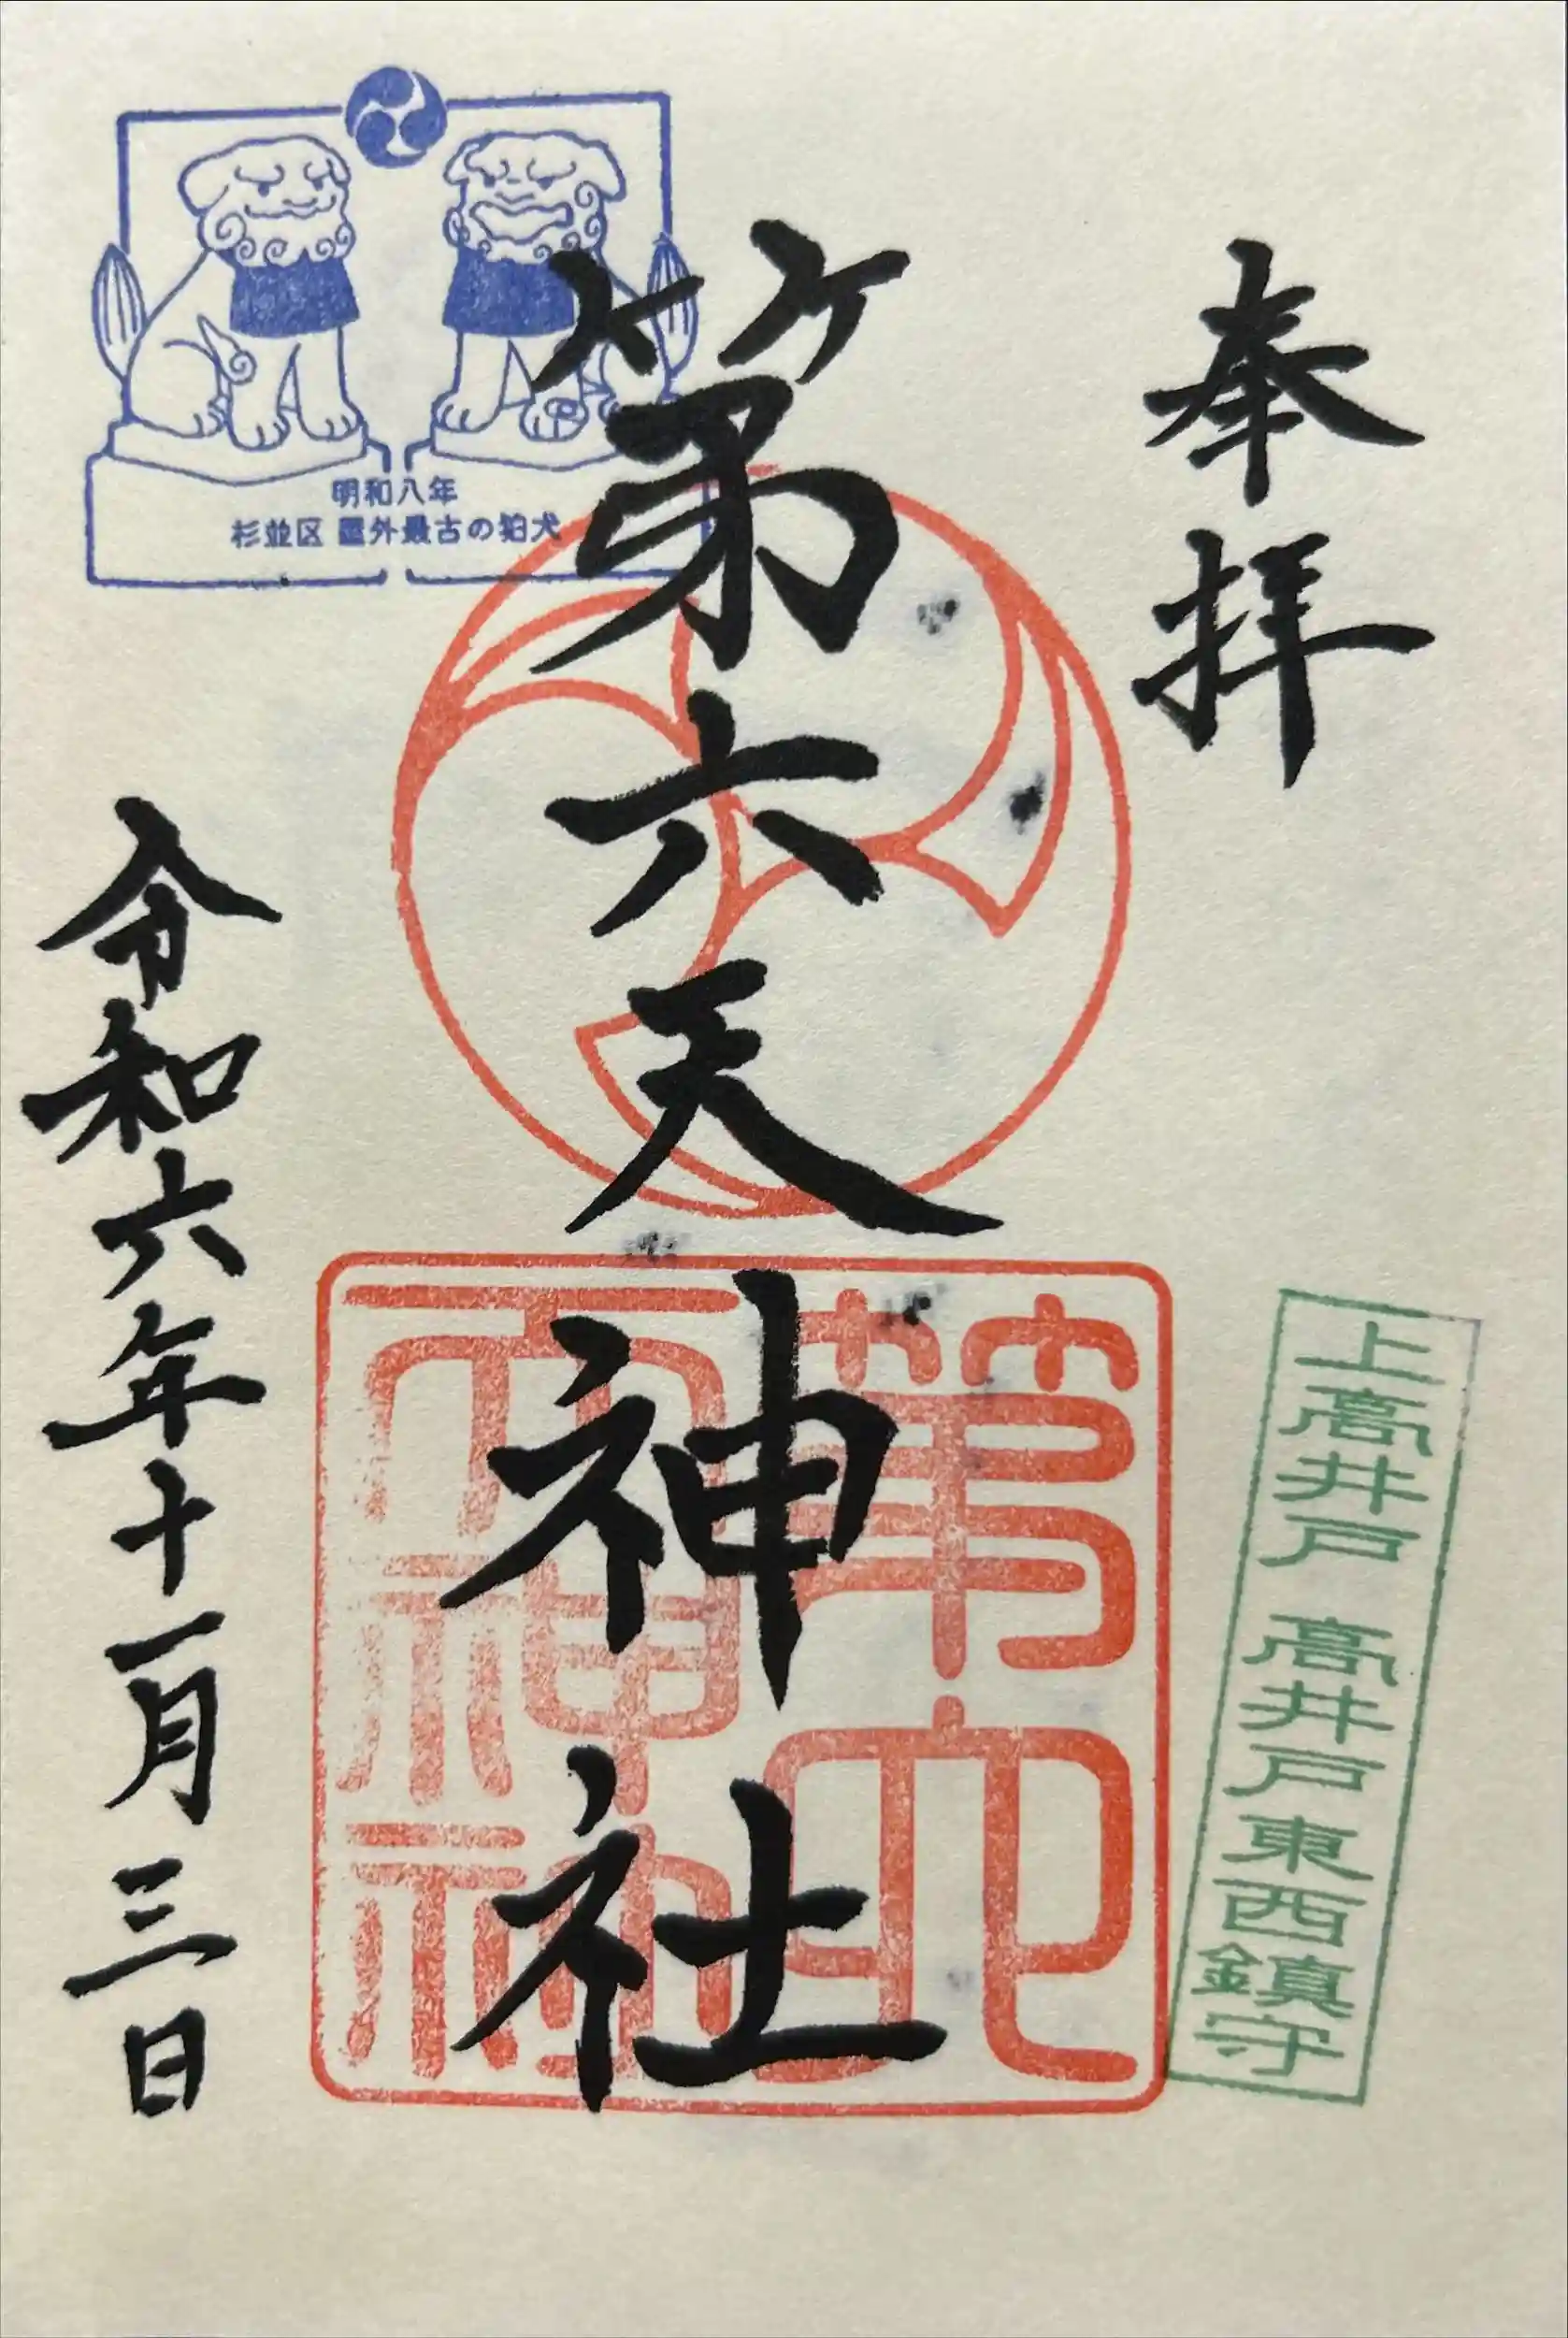 奉拝
上高井戸 高井戸東西鎮守
第六天神社
第六天神社
明和八年
杉並区 屋外最古の狛犬
令和六年十一月三日